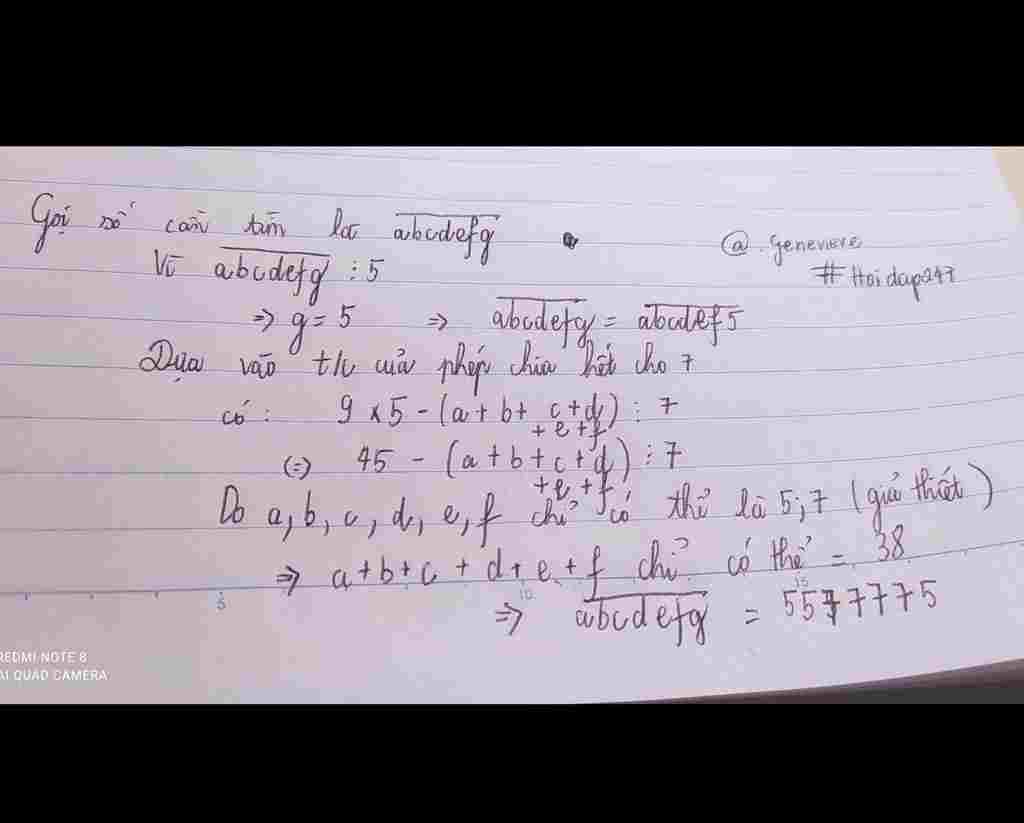 Gọi số cần tìm là abcdefg
@.Genevieve
#Hoidap247
Vì abcdefg ⋮ 5
=> g = 5 => abcdefg = abcdef5
Dựa vào t/c của phép chia hết cho 7
có: 9 x 5 - (a + b + c + d + e + f) ⋮ 7
(=) 45 - (a + b + c + d + e + f) ⋮ 7
Do a, b, c, d, e, f chỉ có thể là 5; 7 (giả thiết)
=> a + b + c + d + e + f chỉ có thể = 38
=> abcdefg = 5577775
5 10 15
REDMI NOTE 8
AI QUAD CAMERA